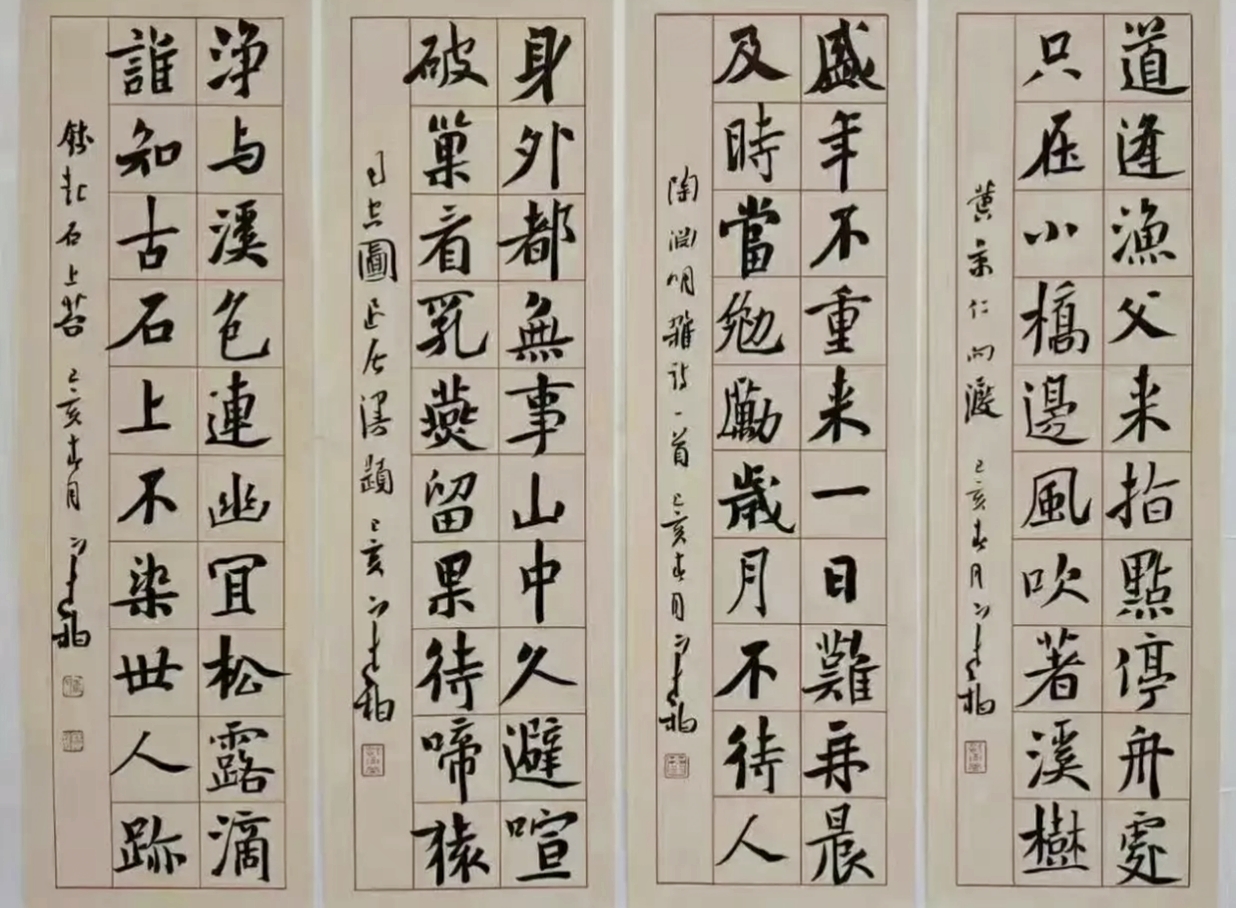 道逢漁父来指點停舟處
只在小橋邊風吹著溪樹
黄景仁問渡 己亥春月
盛年不重来一日難再晨
及時當勉勵歲月不待人
陶淵明雜詩一首 己亥春月
身外都無事山中久避喧
破巢看乳燕留果待啼猿
司空圖退居漫題 己亥
浄与溪色連幽宜松露滴
誰知古石上不染世人跡
錢起石上苔 己亥春月